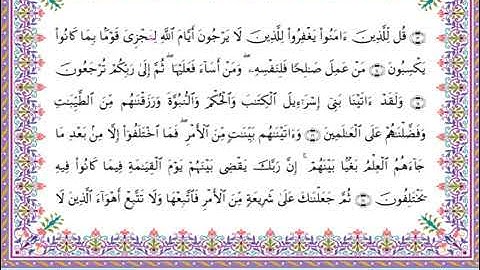 ۝ قُل لِّلَّذِينَ ءَامَنُوا۟ يَغْفِرُوا۟ لِلَّذِينَ لَا يَرْجُونَ أَيَّامَ ٱللَّهِ لِيَجْزِىَ قَوْمًۢا بِمَا كَانُوا۟
يَكْسِبُونَ ۝ مَنْ عَمِلَ صَٰلِحًا فَلِنَفْسِهِۦ ۖ وَمَنْ أَسَآءَ فَعَلَيْهَا ۖ ثُمَّ إِلَىٰ رَبِّكُمْ تُرْجَعُونَ
۝ وَلَقَدْ ءَاتَيْنَا بَنِىٓ إِسْرَٰٓءِيلَ ٱلْكِتَٰبَ وَٱلْحُكْمَ وَٱلنُّبُوَّةَ وَرَزَقْنَٰهُم مِّنَ ٱلطَّيِّبَٰتِ
وَفَضَّلْنَٰهُمْ عَلَى ٱلْعَٰلَمِينَ ۝ وَءَاتَيْنَٰهُم بَيِّنَٰتٍ مِّنَ ٱلْأَمْرِ ۖ فَمَا ٱخْتَلَفُوٓا۟ إِلَّا مِنۢ بَعْدِ مَا
جَآءَهُمُ ٱلْعِلْمُ بَغْيًۢا بَيْنَهُمْ ۚ إِنَّ رَبَّكَ يَقْضِى بَيْنَهُمْ يَوْمَ ٱلْقِيَٰمَةِ فِيمَا كَانُوا۟ فِيهِ
يَخْتَلِفُونَ ۝ ثُمَّ جَعَلْنَٰكَ عَلَىٰ شَرِيعَةٍ مِّنَ ٱلْأَمْرِ فَٱتَّبِعْهَا وَلَا تَتَّبِعْ أَهْوَآءَ ٱلَّذِينَ لَا